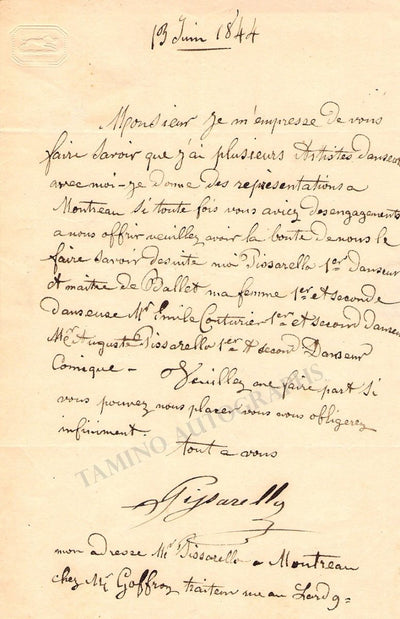 13 Juin 1844
Monsieur je m'empresse de vous
faire savoir que j'ai plusieurs Artistes danseurs
avec moi - je donne des représentations a
Montreau si toute fois vous aviez des engagements
a nous offrir veuillez avoir la bonté de nous le
faire savoir desuite moi Pissarello 1er Danseur
et maitre de Ballet ma femme 1er et seconde
danseuse Mr Emile Couturier 1er et second danseur
Mr Auguste Pissarello 1er et second Danseur
Comique - Veuillez me faire part si
vous pouvez nous placer vous nous obligerez
infiniment.
tout a vous
Pissarello
mon adresse Mr Pissarello a Montreau
chez Mr Goffroy traiteur rue au
TAMINO AUTOGRAPHS